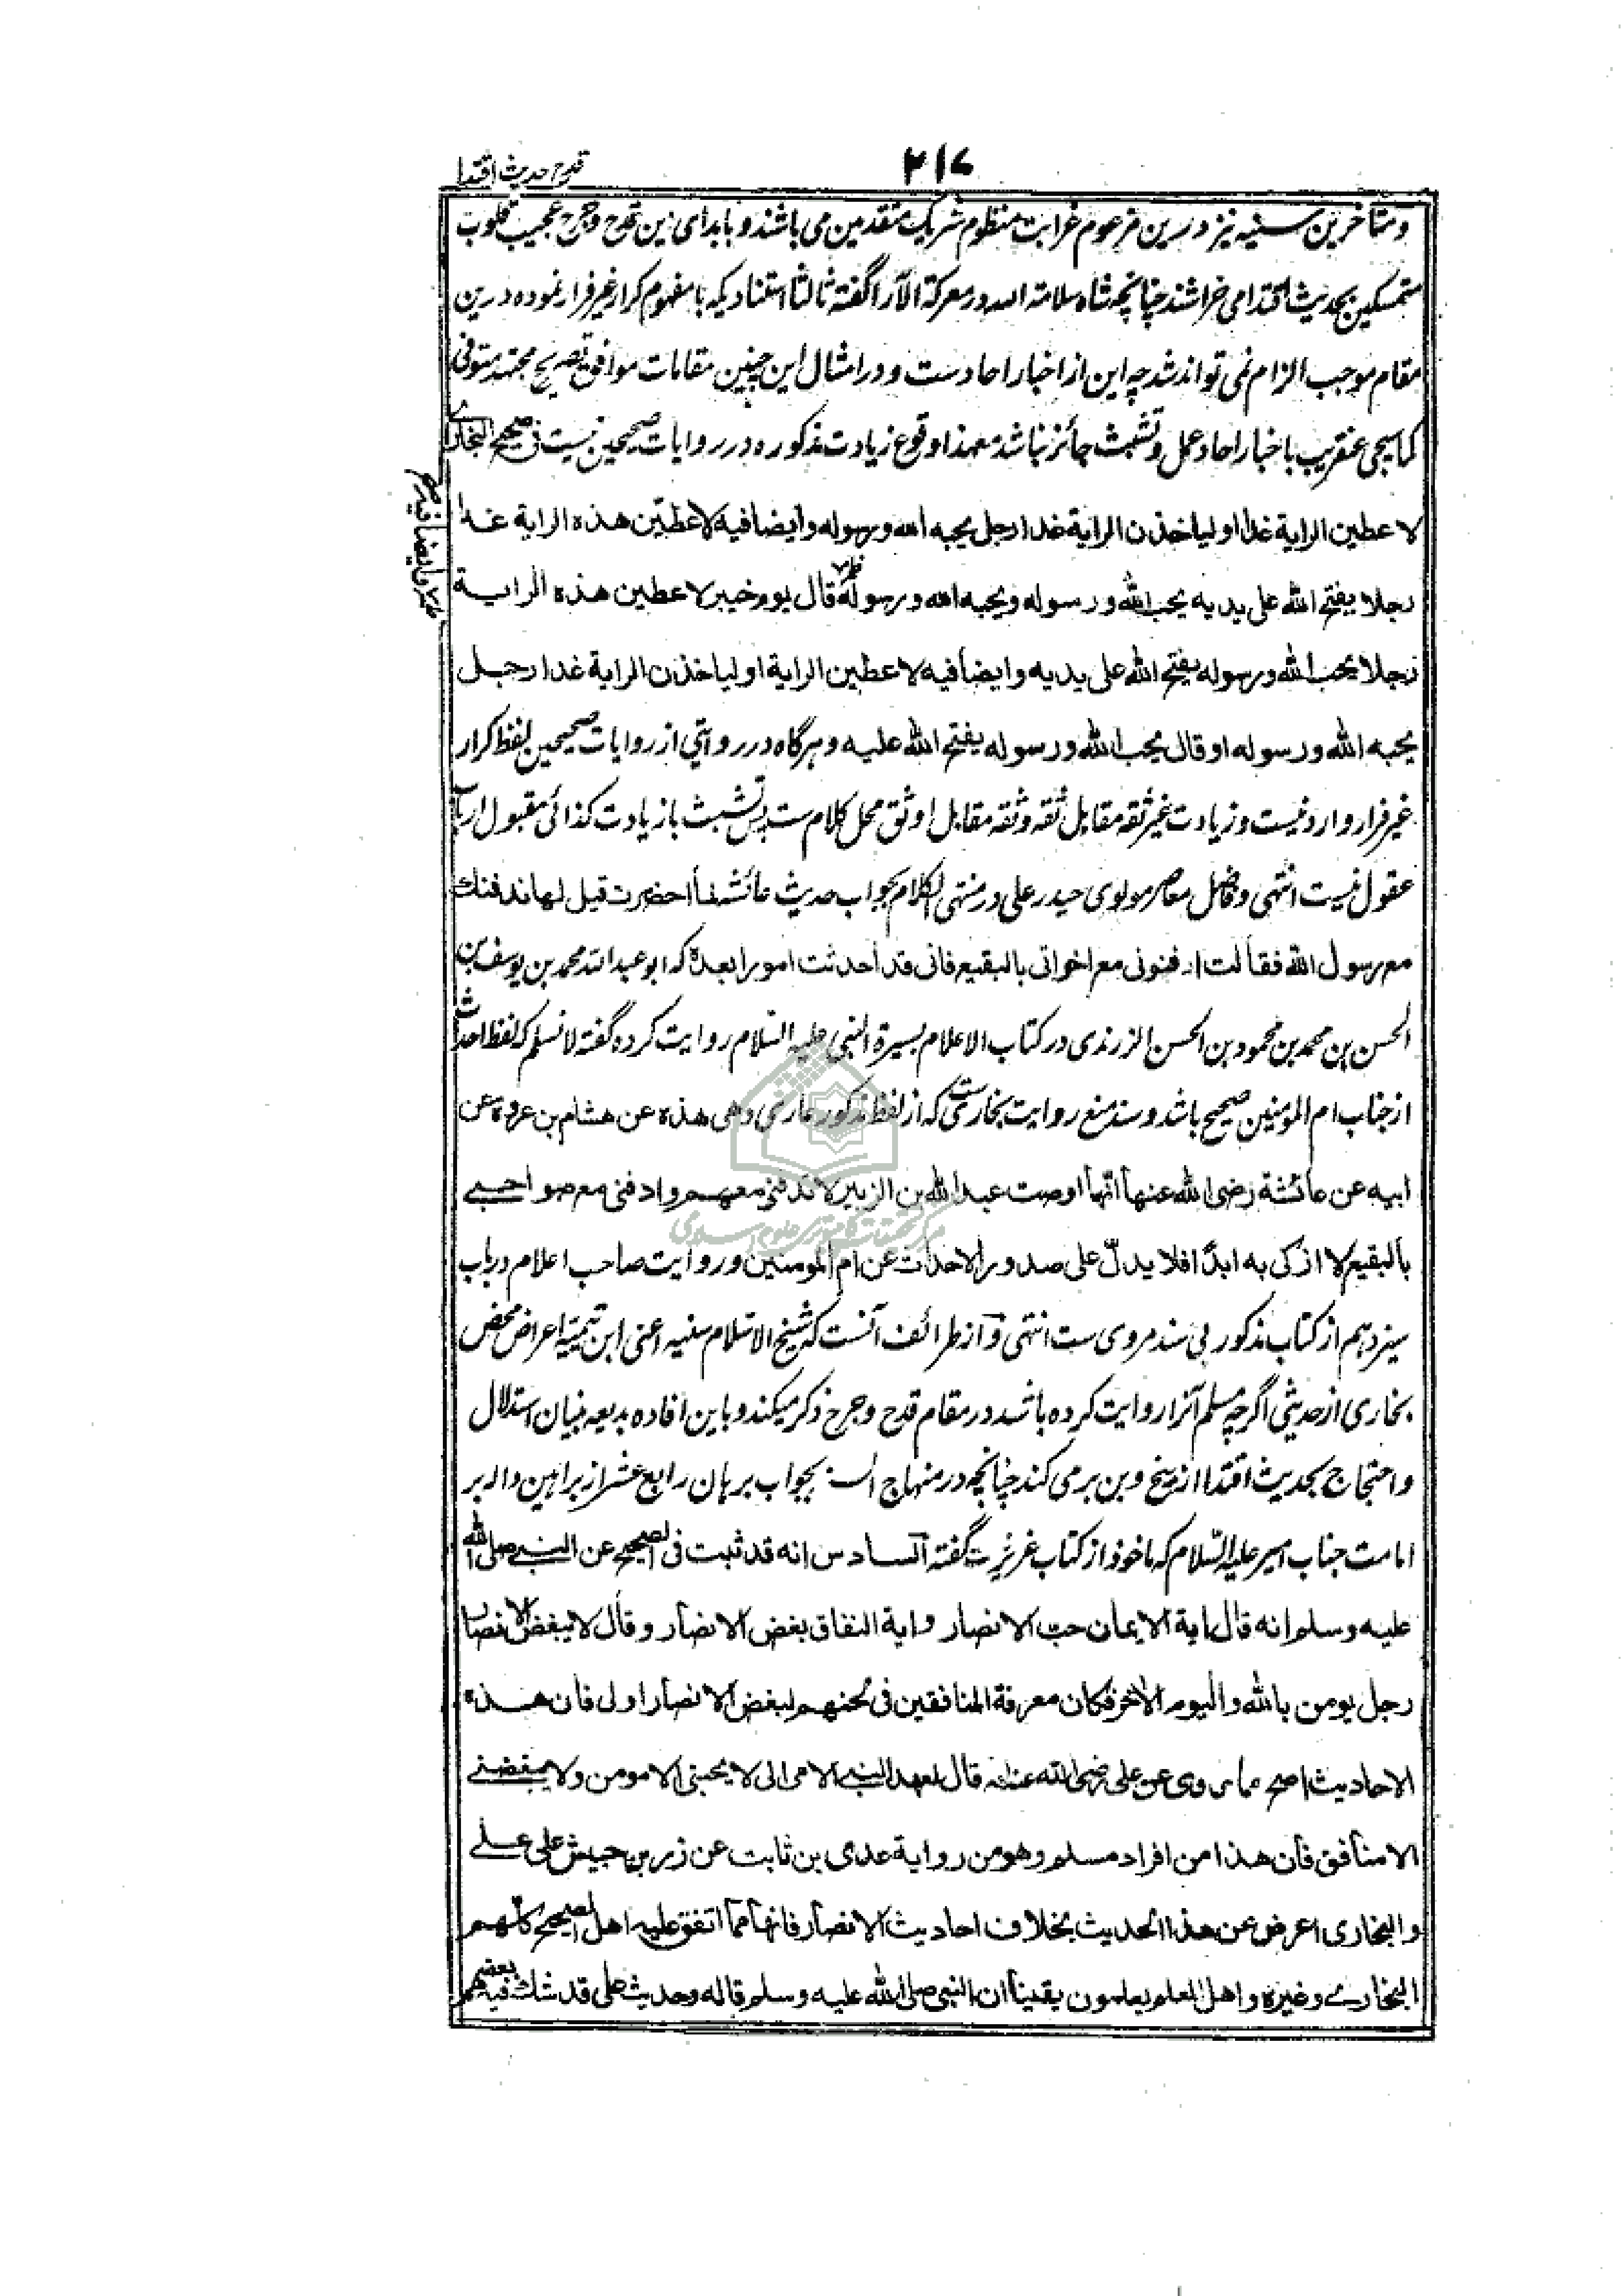 ۲۱۷
قدح حدیث اقتدا
و متأخرین سنیه نیز درین مزعوم غرابت منظوم شریک متقدمین می باشند و بابدای این قدح و جرح عجیب قلوب
متمسکین بحدیث اقتدا می خراشند چنانچه شاه سلامة الله در معرکة الآرا گفته ثالثا استنادیکه با مفهوم کرار غیر فرار نموده درین
مقام موجب الزام نمی تواند شد چه این از اخبار احادست و در امثال این چنین مقامات موافق تصریح مجتهد متوفی
کما سیجی عنقریب باخبار احاد عمل و تشبث جائز نباشد معهذا وقوع زیادت مذکوره در روایات صحیحین نیست فی صحیح البخاری
لاعطین الرایة غدا او لیاخذن الرایة غدا رجل یحبه الله ورسوله وایضا فیه لاعطین هذه الرایة غدا
رجلا یفتح الله علی یدیه یحب الله ورسوله ویحبه الله ورسوله قال یوم خیبر لاعطین هذه الرایة
رجلا یحب الله ورسوله یفتح الله علی یدیه وایضا فیه لاعطین الرایة او لیاخذن الرایة غدا رجل
یحبه الله ورسوله او قال یحب الله ورسوله یفتح الله علیه و هرگاه در روایتی از روایات صحیحین لفظ کرار
غیر فرار وارد نیست و زیادت غیر ثقه مقابل ثقه و ثقه مقابل اوثق محل کلام ست پس تشبث بازیادت کذائی مقبول ارباب
عقول نیست انتهی و فاضل معاصر مولوی حیدر علی در منتهی الکلام بجواب حدیث عائشة لما احضرت قیل لها ندفنك
مع رسول الله فقالت ادفنونی مع اخواتی بالبقیع فانی قد احدثت امورا بعده که ابو عبد الله محمد بن یوسف بن
الحسن بن محمد بن محمود بن الحسن الزرندی در کتاب الاعلام بسیرة النبی علیه السلام روایت کرده گفته لا نسلم که لفظ احداث
از جناب ام المومنین صحیح باشد و سند منع روایت بخاری ست که از لفظ مذکور عاری وهی هذه عن هشام بن عروة عن
ابیه عن عائشة رضی الله عنها انها اوصت عبد الله بن الزبیر لا تدفنی معهم وادفنی مع صواحبی
بالبقیع لا ازکی به ابدا فلا یدل علی صدور الاحداث عن ام المومنین و روایت صاحب اعلام در باب
سیزدهم از کتاب مذکور بی سند مروی ست انتهی و از طرائف آنست که شیخ الاسلام سنیه اعنی ابن تیمیه اعراض محض
بخاری از حدیثی اگرچه مسلم آنرا روایت کرده باشد در مقام قدح و جرح ذکر میکند و باین افاده بدیعه بنیان استدلال
و احتجاج بحدیث اقتدا از بیخ و بن برمی کند چنانچه در منهاج السنه بجواب برهان رابع عشر از براهین داله بر
امامت جناب امیر علیه السلام که ماخوذ از کتاب عزیزست گفته السادس انه قد ثبت فی الصحیح عن النبی صلی الله
علیه وسلم انه قال اية الايمان حب الانصار واية النفاق بغض الانصار وقال لا یبغض الانصار
رجل یومن بالله والیوم الاخر فكان معرفة المنافقین فی لحنهم لبغض الانصار اولی فان هذه
الاحادیث اصح مما روی عن علی رضی الله عنه انه قال لعهد النبی الامی الی لا یحبنی الا مومن ولا یبغضنی
الا منافق فان هذا من افراد مسلم وهو من رواية عدی بن ثابت عن زر بن حبیش علی علی
والبخاری اعرض عن هذا الحدیث بخلاف احادیث الانصار فانها مما اتفق علیه اهل الصحیح کلهم
البخاری وغیره واهل العلم یعلمون یقینا ان النبی صلی الله علیه وسلم قاله وحدیث علی قد شك فیه بعضهم
مرکز تحقیقات کامپیوتری علوم اسلامی